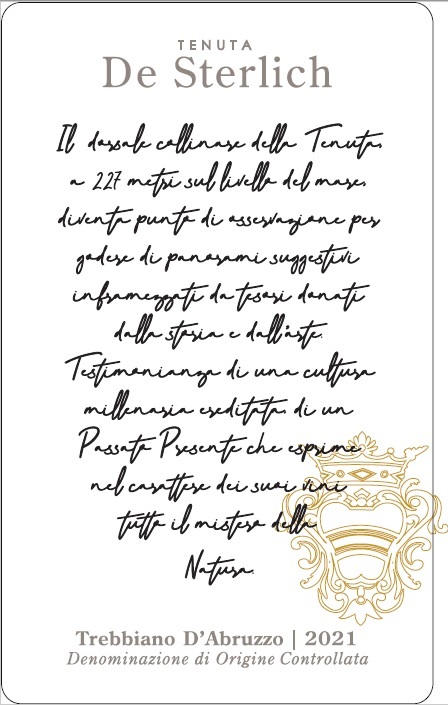 TENUTA
De Sterlich
Il dorsale collinare della Tenuta,
a 227 metri sul livello del mare,
diventa punto di osservazione per
godere di panorami suggestivi
inframezzati da tesori donati
dalla storia e dall'arte.
Testimonianza di una cultura
millenaria ereditata, di un
Passato Presente che esprime
nel carattere dei suoi vini
tutto il mistero della
Natura.
Trebbiano D'Abruzzo | 2021
Denominazione di Origine Controllata